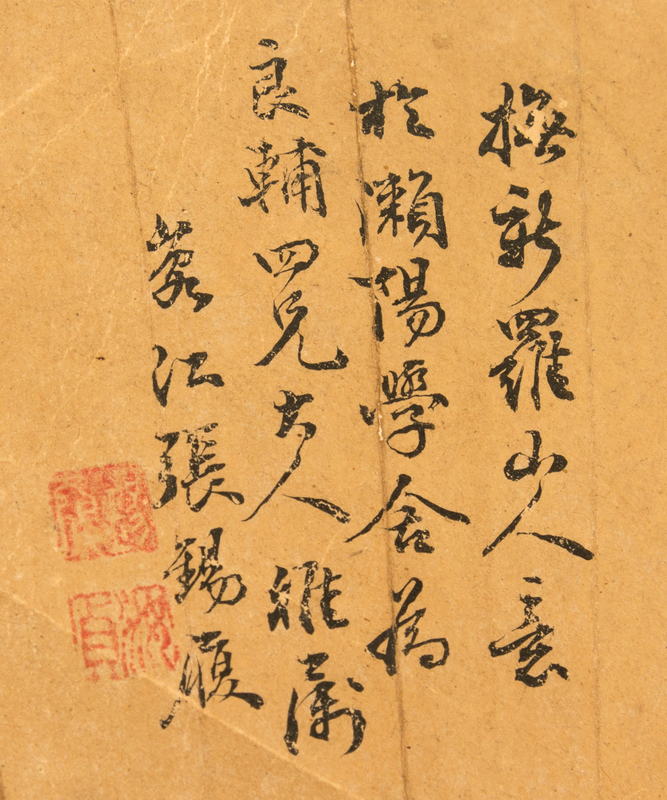 撫新羅山人意
於瀨陽學舍為
良輔四兄大人雅衡
江張錫履